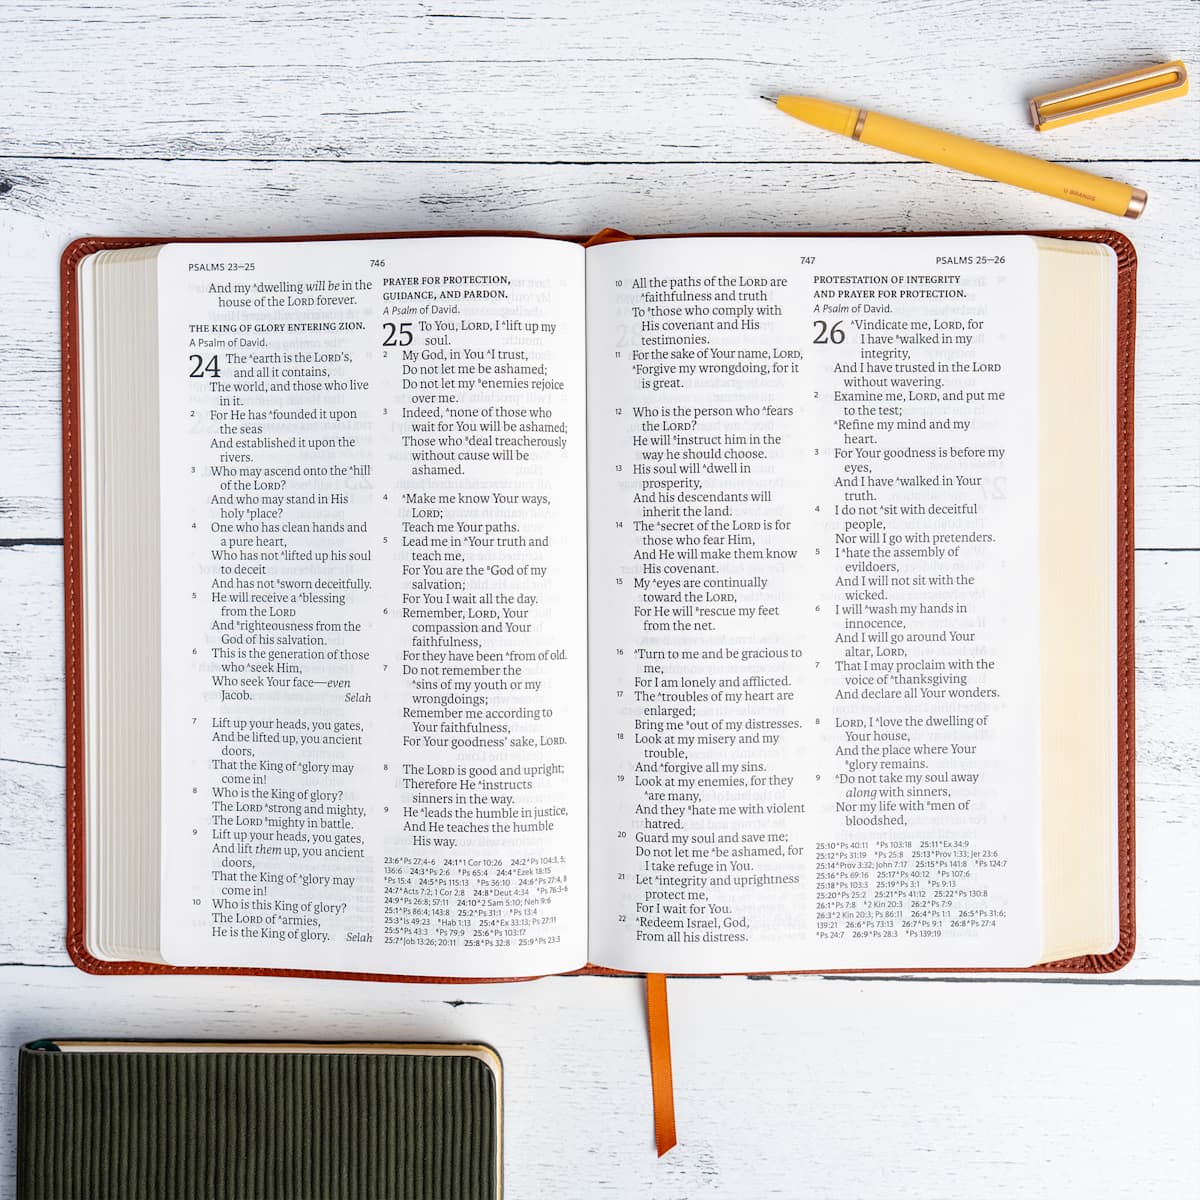 U BRANDS
PSALMS 23—25
746
And my ᴬdwelling will be in the
house of the LORD forever.
THE KING OF GLORY ENTERING ZION.
A Psalm of David.
24 The ᴬearth is the LORD's,
and all it contains,
The world, and those who live
in it.
2 For He has ᴬfounded it upon
the seas
And established it upon the
rivers.
3 Who may ascend onto the ᴬhill
of the LORD?
And who may stand in His
holy ᴮplace?
4 One who has clean hands and
a pure heart,
Who has not ᴬlifted up his soul
to deceit
And has not ᴮsworn deceitfully.
5 He will receive a ᴬblessing
from the LORD
And ᴮrighteousness from the
God of his salvation.
6 This is the generation of those
who ᴬseek Him,
Who seek Your face—even
Jacob. Selah
7 Lift up your heads, you gates,
And be lifted up, you ancient
doors,
That the King of ᴬglory may
come in!
8 Who is the King of glory?
The LORD ᴬstrong and mighty,
The LORD ᴮmighty in battle.
9 Lift up your heads, you gates,
And lift them up, you ancient
doors,
That the King of ᴬglory may
come in!
10 Who is this King of glory?
The LORD of ᴬarmies,
He is the King of glory. Selah
PRAYER FOR PROTECTION,
GUIDANCE, AND PARDON.
A Psalm of David.
25 To You, LORD, I ᴬlift up my
soul.
2 My God, in You ᴬI trust,
Do not let me be ashamed;
Do not let my ᴮenemies rejoice
over me.
3 Indeed, ᴬnone of those who
wait for You will be ashamed;
Those who ᴮdeal treacherously
without cause will be
ashamed.
4 ᴬMake me know Your ways,
LORD;
Teach me Your paths.
5 Lead me in ᴬYour truth and
teach me,
For You are the ᴮGod of my
salvation;
For You I wait all the day.
6 Remember, LORD, Your
compassion and Your
faithfulness,
For they have been ᴬfrom of old.
7 Do not remember the
ᴬsins of my youth or my
wrongdoings;
Remember me according to
Your faithfulness,
For Your goodness' sake, LORD.
8 The LORD is good and upright;
Therefore He ᴬinstructs
sinners in the way.
9 He ᴬleads the humble in justice,
And He teaches the humble
His way.
23:6 ᴬPs 27:4-6 24:1 ᴬ1 Cor 10:26 24:2 ᴬPs 104:3, 5;
136:6 24:3 ᴬPs 2:6 ᴮPs 65:4 24:4 ᴬEzek 18:15
ᴮPs 15:4 24:5 ᴬPs 115:13 ᴮPs 36:10 24:6 ᴬPs 27:4, 8
24:7 ᴬActs 7:2; 1 Cor 2:8 24:8 ᴬDeut 4:34 ᴮPs 76:3-6
24:9 ᴬPs 26:8; 57:11 24:10 ᴬ2 Sam 5:10; Neh 9:6
25:1 ᴬPs 86:4; 143:8 25:2 ᴬPs 31:1 ᴮPs 13:4
25:3 ᴬIs 49:23 ᴮHab 1:13 25:4 ᴬEx 33:13; Ps 27:11
25:5 ᴬPs 43:3 ᴮPs 79:9 25:6 ᴬPs 103:17
25:7 ᴬJob 13:26; 20:11 25:8 ᴬPs 32:8 25:9 ᴬPs 23:3
747
PSALMS 25—26
10 All the paths of the LORD are
ᴬfaithfulness and truth
To ᴮthose who comply with
His covenant and His
testimonies.
11 For the sake of Your name, LORD,
ᴬForgive my wrongdoing, for it
is great.
12 Who is the person who ᴬfears
the LORD?
He will ᴮinstruct him in the
way he should choose.
13 His soul will ᴬdwell in
prosperity,
And his descendants will
inherit the land.
14 The ᴬsecret of the LORD is for
those who fear Him,
And He will make them know
His covenant.
15 My ᴬeyes are continually
toward the LORD,
For He will ᴮrescue my feet
from the net.
16 ᴬTurn to me and be gracious to
me,
For I am lonely and afflicted.
17 The ᴬtroubles of my heart are
enlarged;
Bring me ᴮout of my distresses.
18 Look at my misery and my
trouble,
And ᴬforgive all my sins.
19 Look at my enemies, for they
ᴬare many,
And they ᴮhate me with violent
hatred.
20 Guard my soul and save me;
Do not let me ᴬbe ashamed, for
I take refuge in You.
21 Let ᴬintegrity and uprightness
protect me,
For I wait for You.
22 ᴬRedeem Israel, God,
From all his distress.
PROTESTATION OF INTEGRITY
AND PRAYER FOR PROTECTION.
A Psalm of David.
26 ᴬVindicate me, LORD, for
I have ᴮwalked in my
integrity,
And I have trusted in the LORD
without wavering.
2 Examine me, LORD, and put me
to the test;
ᴬRefine my mind and my
heart.
3 For Your goodness is before my
eyes,
And I have ᴬwalked in Your
truth.
4 I do not ᴬsit with deceitful
people,
Nor will I go with pretenders.
5 I ᴬhate the assembly of
evildoers,
And I will not sit with the
wicked.
6 I will ᴬwash my hands in
innocence,
And I will go around Your
altar, LORD,
7 That I may proclaim with the
voice of ᴬthanksgiving
And declare all Your wonders.
8 LORD, I ᴬlove the dwelling of
Your house,
And the place where Your
ᴮglory remains.
9 ᴬDo not take my soul away
along with sinners,
Nor my life with ᴮmen of
bloodshed,
25:10 ᴬPs 40:11 ᴮPs 103:18 25:11 ᴬEx 34:9
25:12 ᴬPs 31:19 ᴮPs 25:8 25:13 ᴬProv 1:33; Jer 23:6
25:14 ᴬProv 3:32; John 7:17 25:15 ᴬPs 141:8 ᴮPs 124:7
25:16 ᴬPs 69:16 25:17 ᴬPs 40:12 ᴮPs 107:6
25:18 ᴬPs 103:3 25:19 ᴬPs 3:1 ᴮPs 9:13
25:20 ᴬPs 25:2 25:21 ᴬPs 41:12 25:22 ᴬPs 130:8
26:1 ᴬPs 7:8 ᴮ2 Kin 20:3 26:2 ᴬPs 7:9
26:3 ᴬ2 Kin 20:3; Ps 86:11 26:4 ᴬPs 1:1 26:5 ᴬPs 31:6;
139:21 26:6 ᴬPs 73:13 26:7 ᴬPs 9:1 26:8 ᴬPs 27:4
ᴮPs 24:7 26:9 ᴬPs 28:3 ᴮPs 139:19